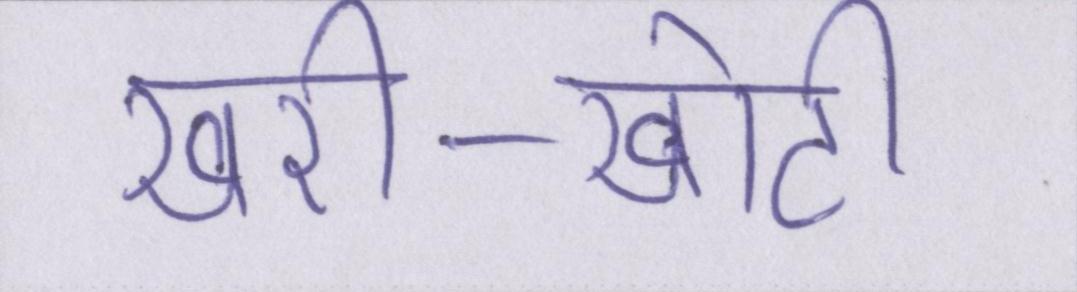 खरी-खोटी